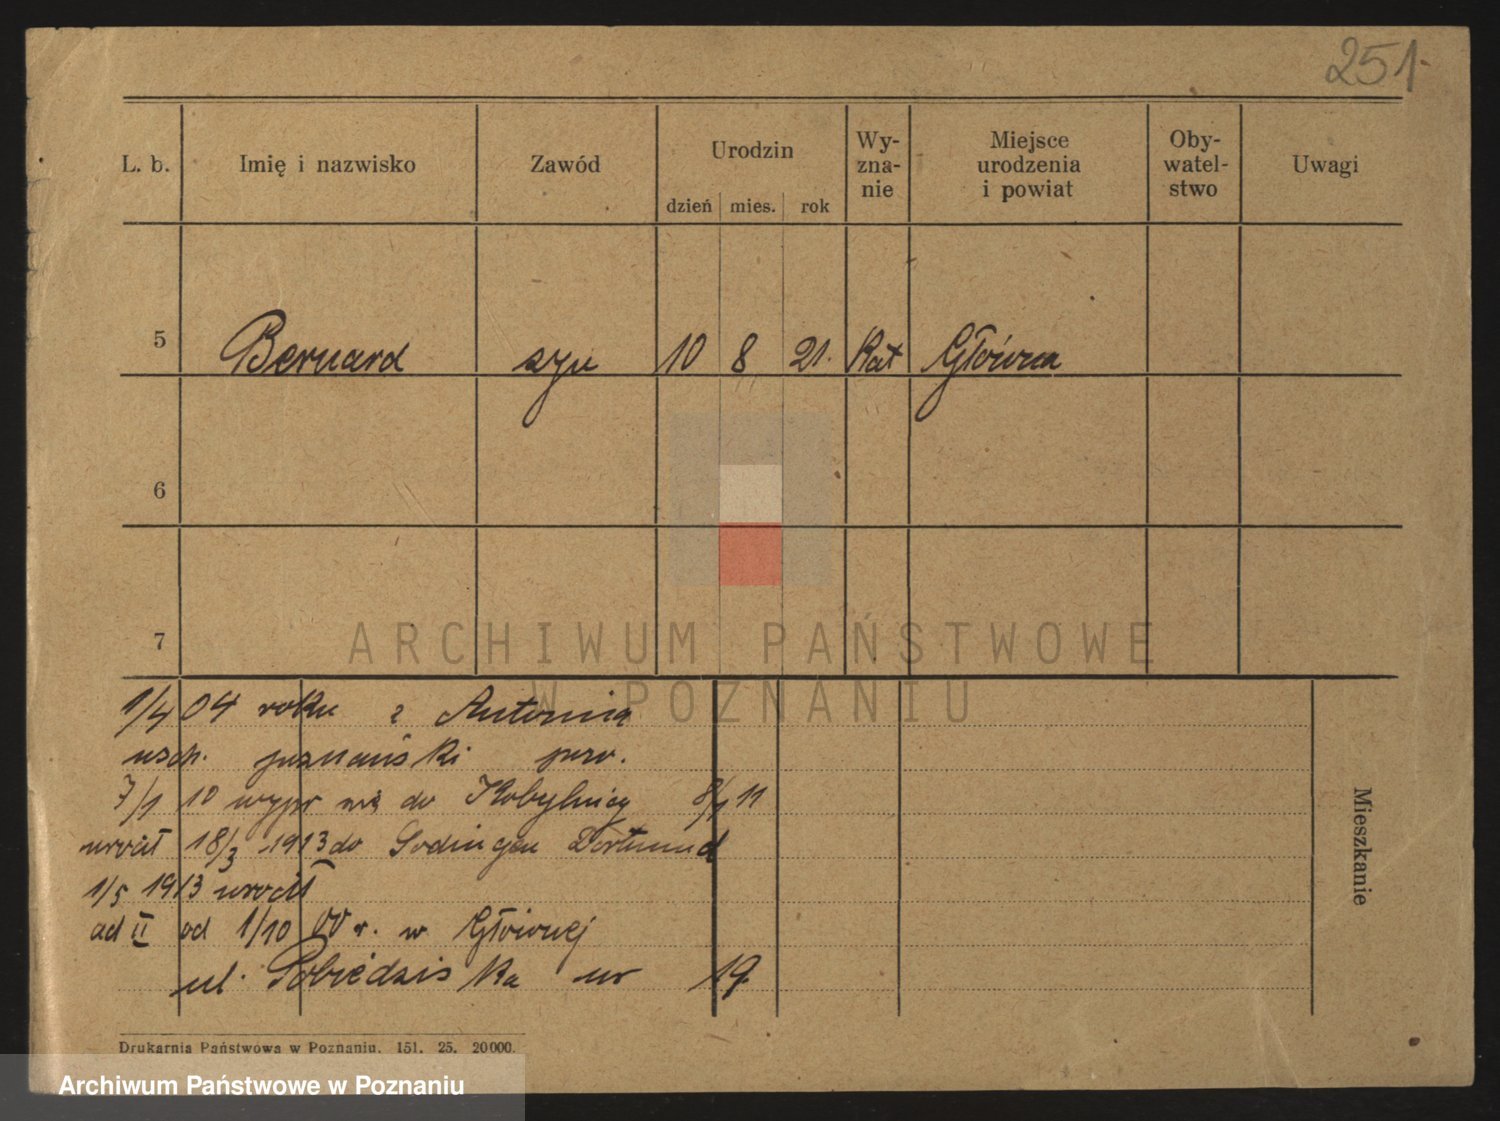 251.
L. b. Imię i nazwisko Zawód Urodzin Wy-zna-nie Miejsce urodzenia i powiat Oby-watel-stwo Uwagi
dzień mies. rok
5 Bernard syn 10 8 21. Kat Główna
6
7
1/4 04 roku z Antonin
wsch. poznański pow.
7/1 10 wypr się do Kobylnicy 8/1 11
wrócił 18/3 1913 do Dortmund
1/5 1913 wrócił
ad II od 1/10 00 r. w Głównej
ul. Pobiedziska nr 19
Mieszkanie
Drukarnia Państwowa w Poznaniu. 151. 25. 20000.
ARCHIWUM PAŃSTWOWE
W POZNANIU
Archiwum Państwowe w Poznaniu